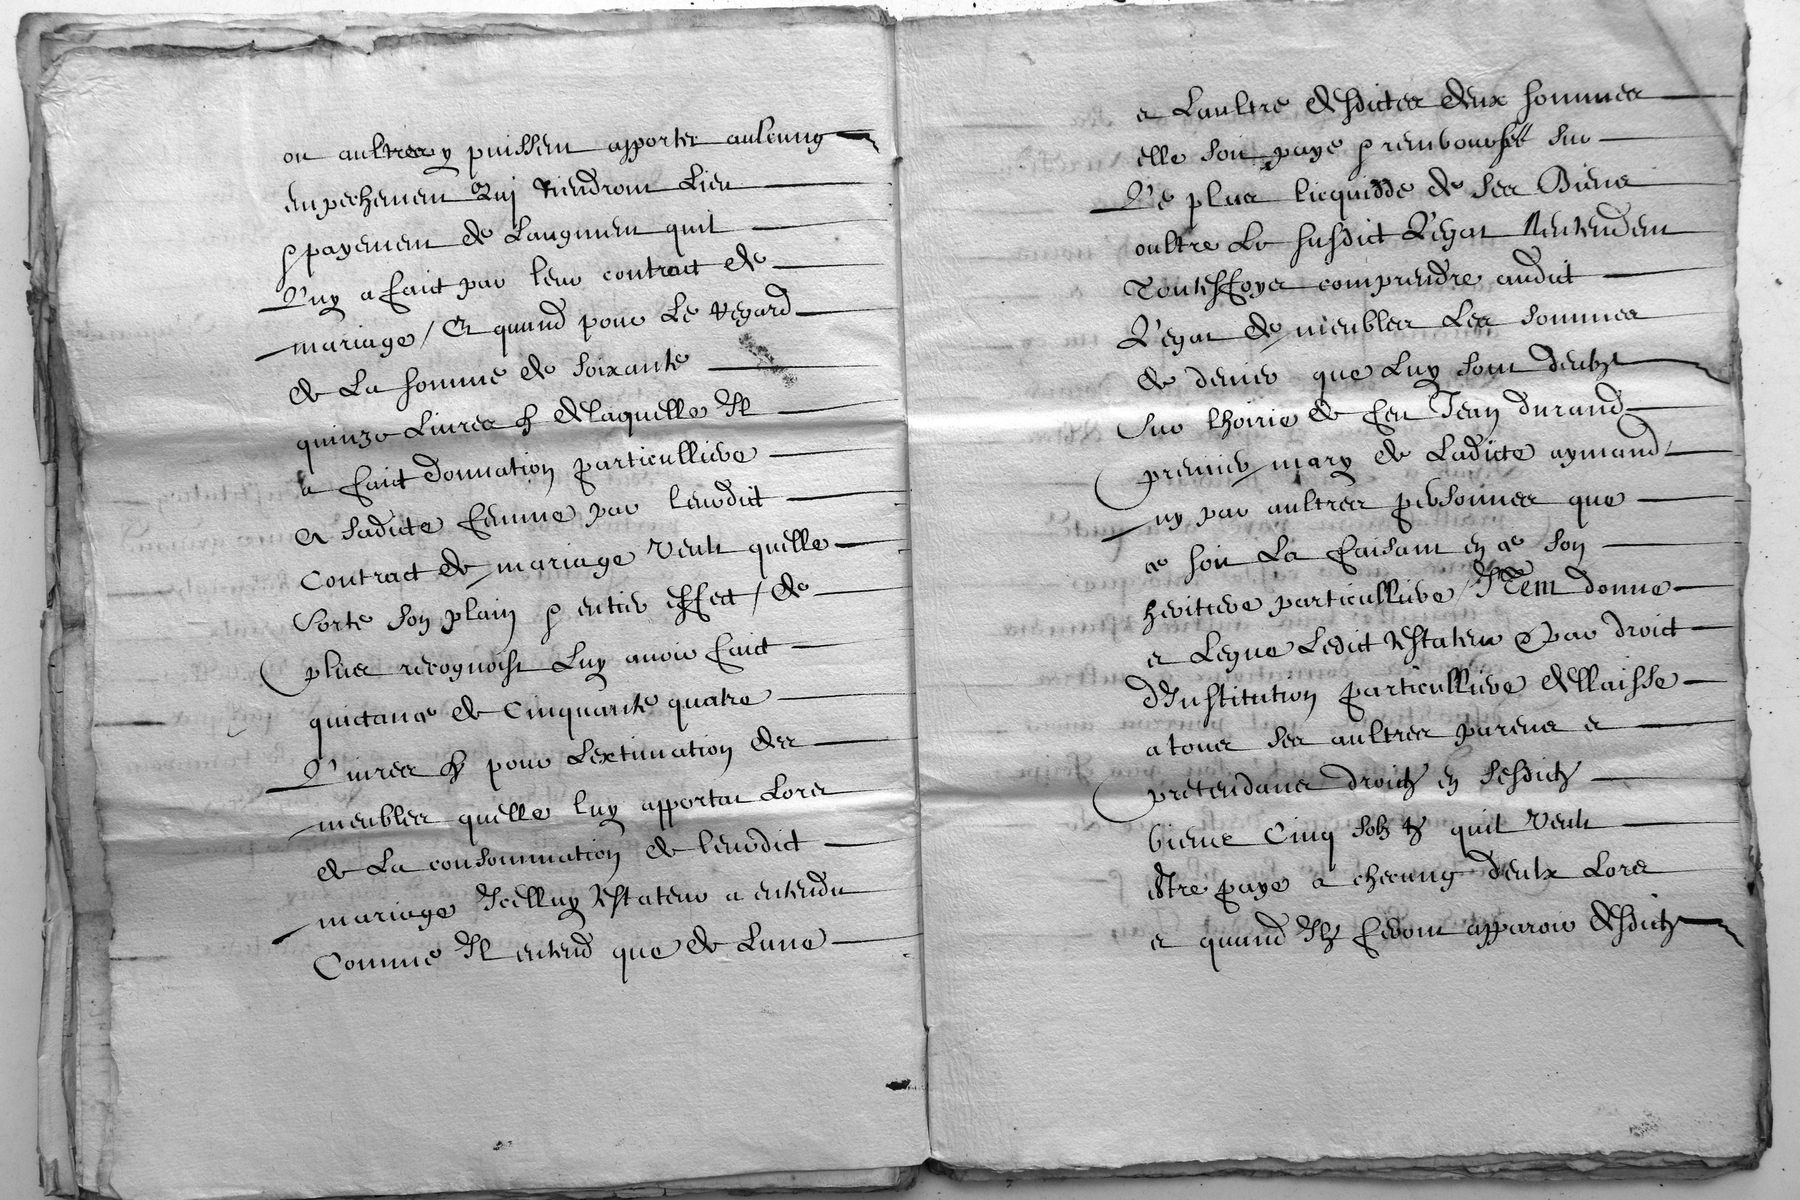 ou aultres y puissent apporter aulcung
empechement Qui tiendront Lieu
payement de Laugment quil
Luy a faict par leur contract de
mariage / Et quand pour Le regard
de La somme de soixante
quinze Livres de laquelle Il
a faict donnation particulliere
A sadicte femme par leurdict
Contract de mariage Veult quelle
Sorte son plain & entier effect / de
plus recognoist Luy avoir faict
quictance de Cinquante quatre
Livres pour Lextimation des
meubles quelle luy apportat Lors
de La consommation de leurdict
mariage Icelluy testateur a entendu
Comme Il entend que de Lune
et Laultre desdictes deux sommes
elle soit paye & remboursee sur
Le plus licquidde de ses Biens
oultre Le susdict Legat Nentendent
Toutesfoys comprendre audict
Legat de meubles Les sommes
de denier que Luy sont deubz
Sur lhoirie de feu Jean durand
premier mary de Ladicte aymard
ny par aultres personnes que
ce soit La faisant en ce son
heritiere particulliere / Item donne
et Legue Ledict testateur & par droict
dInstitution particulliere dellaisse
a tous ses aultres parens et
pretendans droictz en sesdictz
biens Cinq solz quil Veult
estre paye a checung deulx Lors
et quand Ilz feront apparoir desdictz